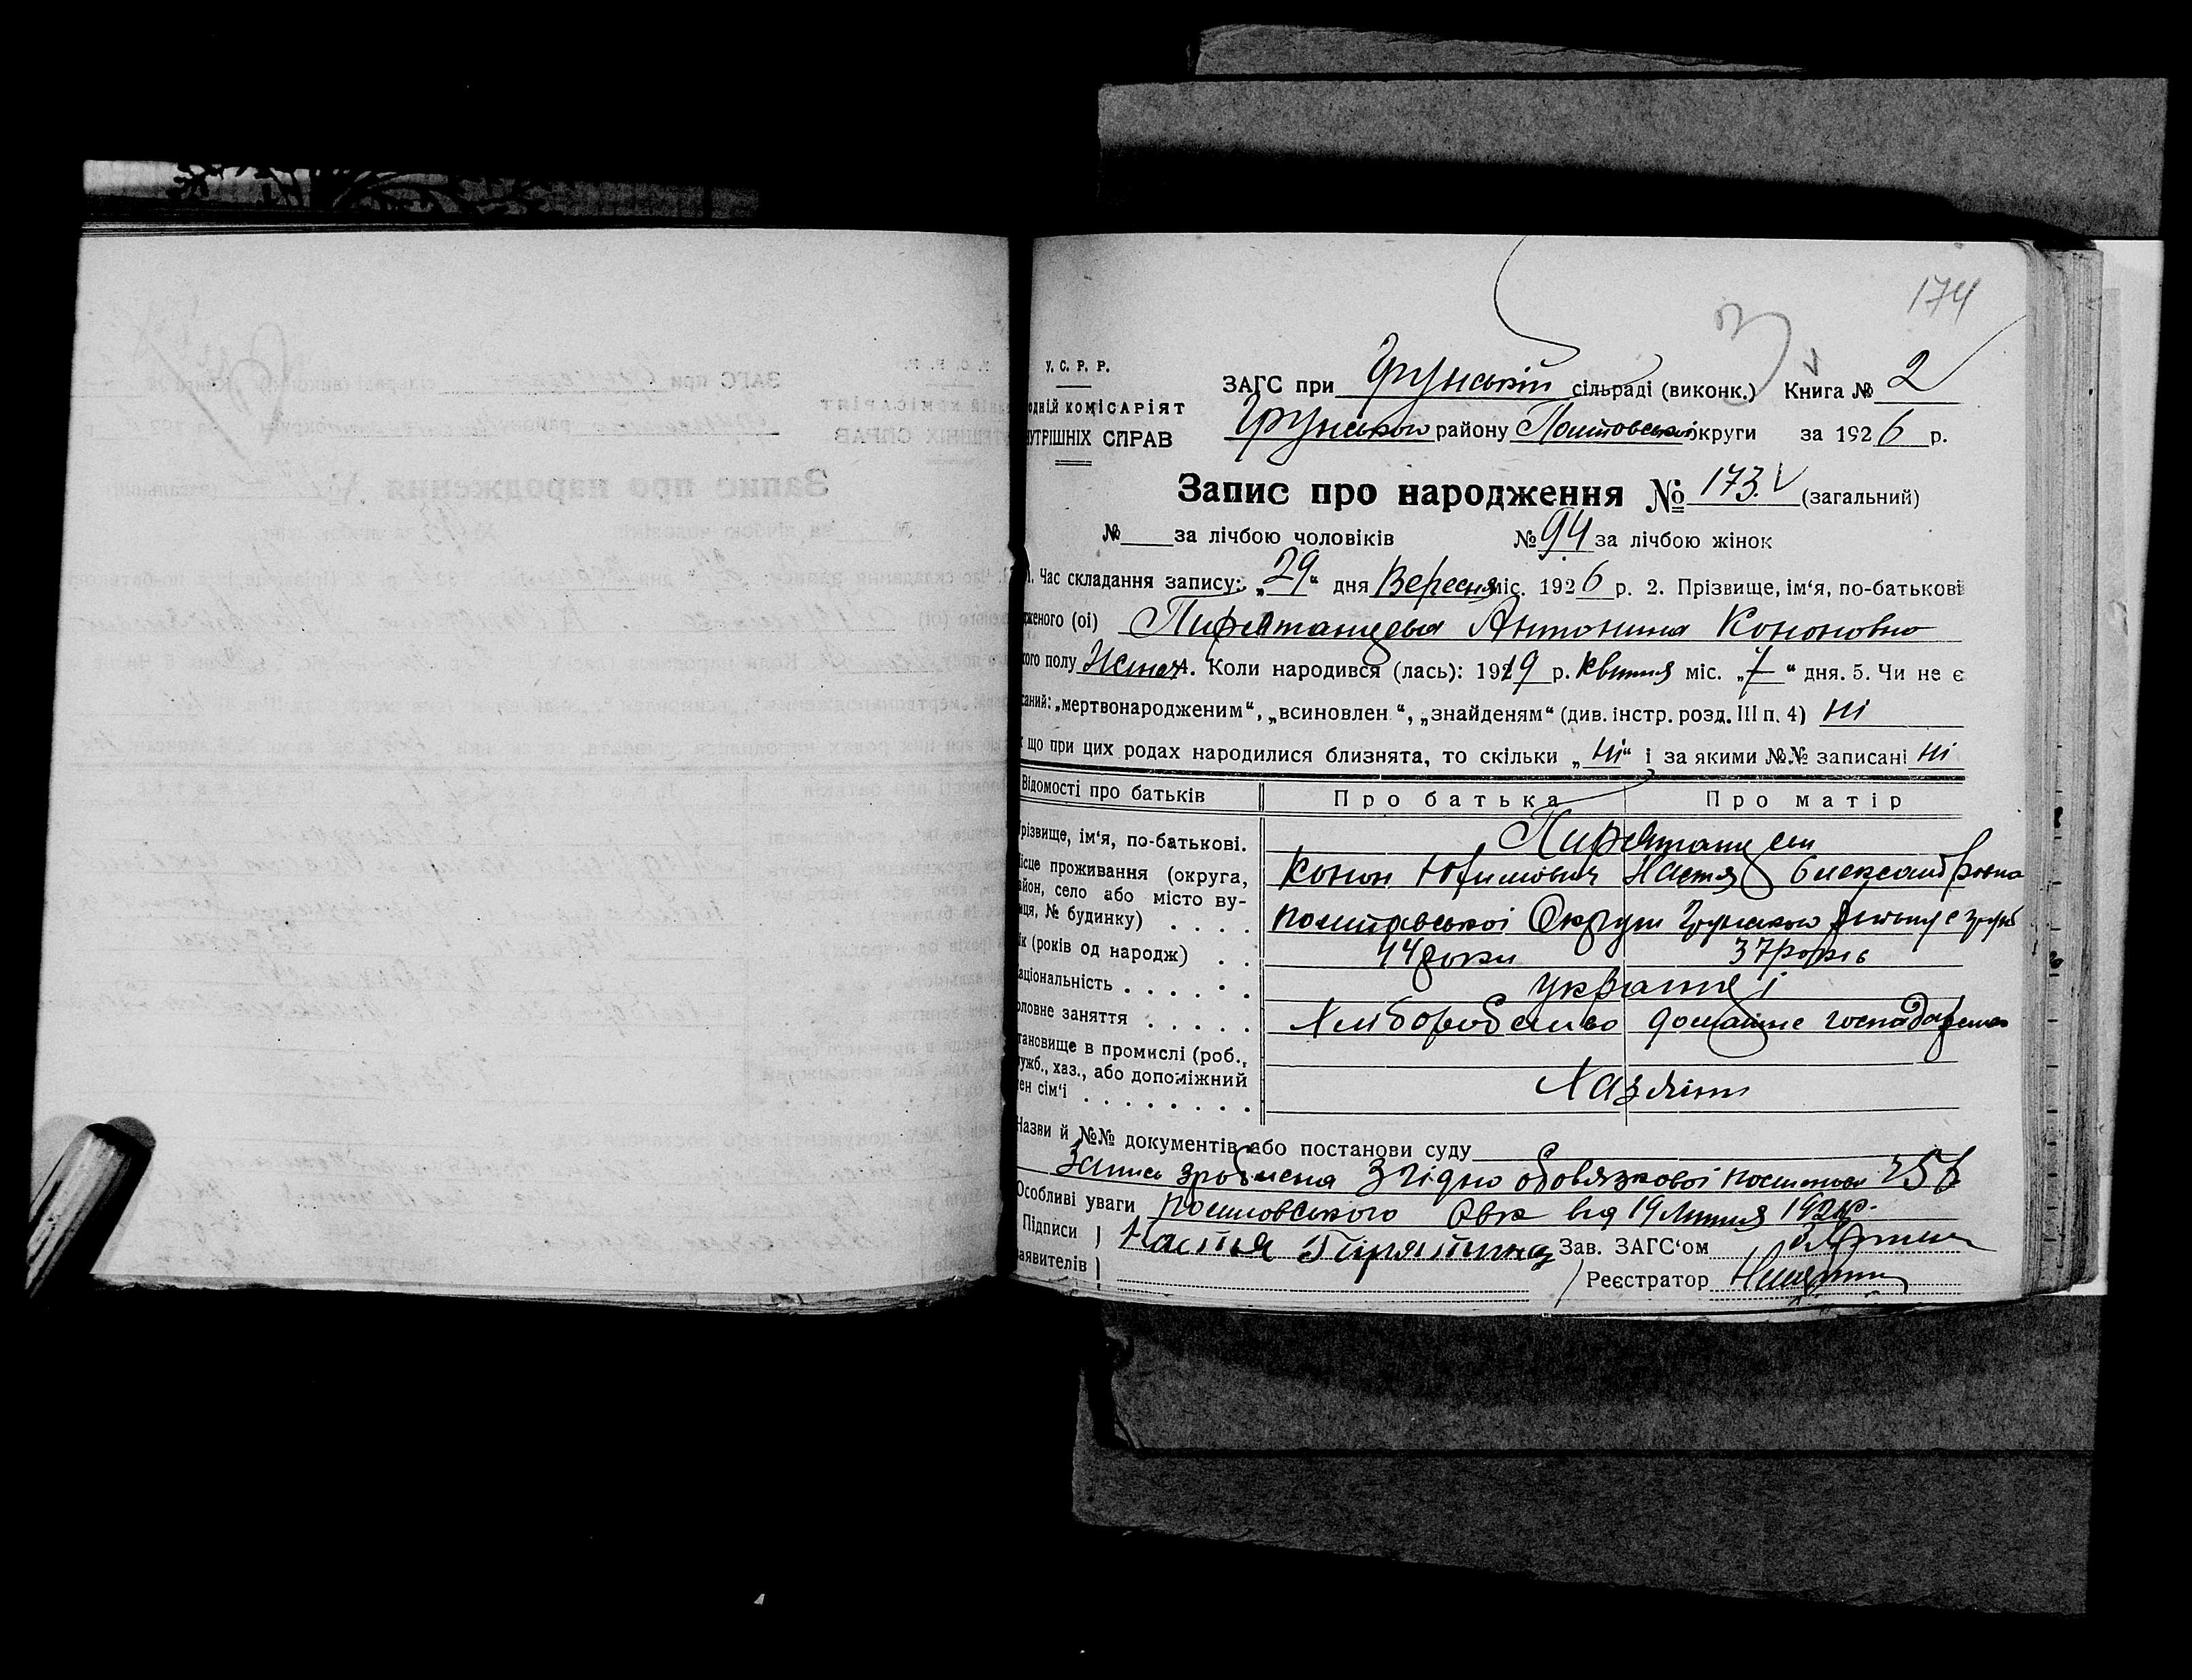 174
З
У. С. Р. Р.
ЗАГС при Грунській сільраді (виконк.) Книга № 2
одній комісаріят
Грунського району Полтовської округи за 1926 р.
УТРІШНІХ СПРАВ
Запис про народження № 173. (загальний)
№ за лічбою чоловіків № 94 за лічбою жінок
1. Час складання запису: „29“ дня Вересня міс. 1926 р. 2. Прізвище, ім‘я, по-батькові
дженого (ої) Пирятанцева Антонина Кононовна
кого полу Жіноч 4. Коли народився (лась): 1919 р. квітня міс. „7“ дня. 5. Чи не є
саний: „мертвонародженим“, „всиновлен “, „знайденям“ (див. інстр. розд. III п. 4) ні
що при цих родах народилися близнята, то скільки „ні“ і за якими №№ записані ні
Відомості про батьків Про батька Про матір
різвище, ім‘я, по-батькові.
ісце проживання (округа, Конон Юхимович Настя Олександровна
айон, село або місто ву-
иця, № будинку) . . . . Полтавської Округи Грунського
ік (років од народж) . . 44 роки 37 років
аціональність . . . . . . Українці
оловне заняття . . . . . Хліборобство домашнє господарство
тановище в промислі (роб.,
ужб., хаз., або допоміжний
ен сім‘ї . . . . . . . . . Хазяїни
Назви й №№ документів або постанови суду
Запись зроблена Згідно обовязкової постанови
Особливі уваги Полтовського Овк від 19 Липня
Підписи Настя Зав. ЗАГС‘ом
аявителів Реєстратор